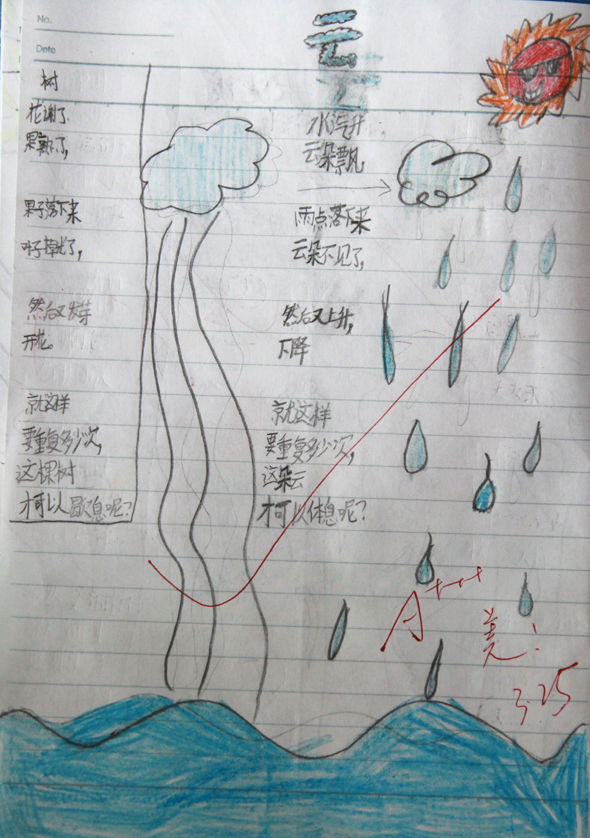 No.
Date
云
树
花谢了,
果熟了,
果子落下来
叶子掉光了,
然后又发芽
开花。
就这样
要重复多少次,
这棵树
才可以歇息呢?
水汽升
云朵飘
雨点落下来
云朵不见了,
然后又上升,
下降
就这样
要重复多少次,
这朵云
才可以休息呢?
A+++
美!
3.25